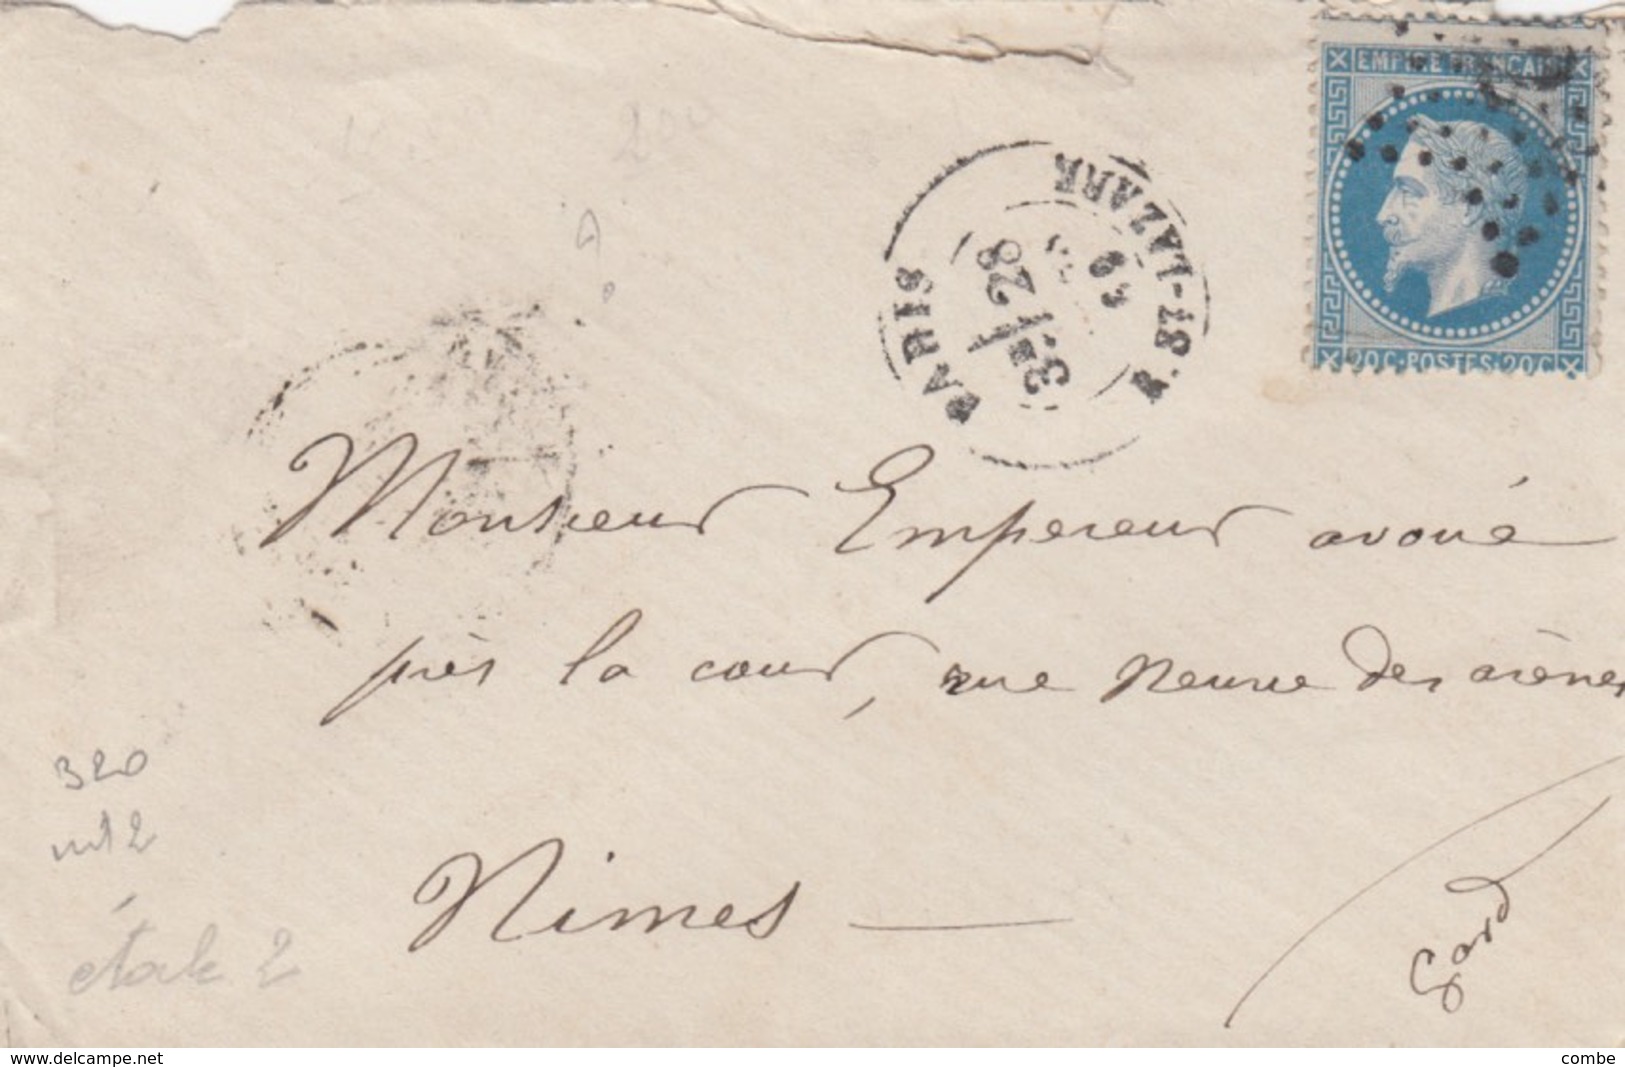 EMPIRE FRANCAIS
20C·POSTES·20C
PARIS
R.ST-LAZARE
28
69
Monsieur Empereur avoué
près la cour, rue neuve des arènes
320
Nimes —
Gard
étoile 2
www.delcampe.net
combe